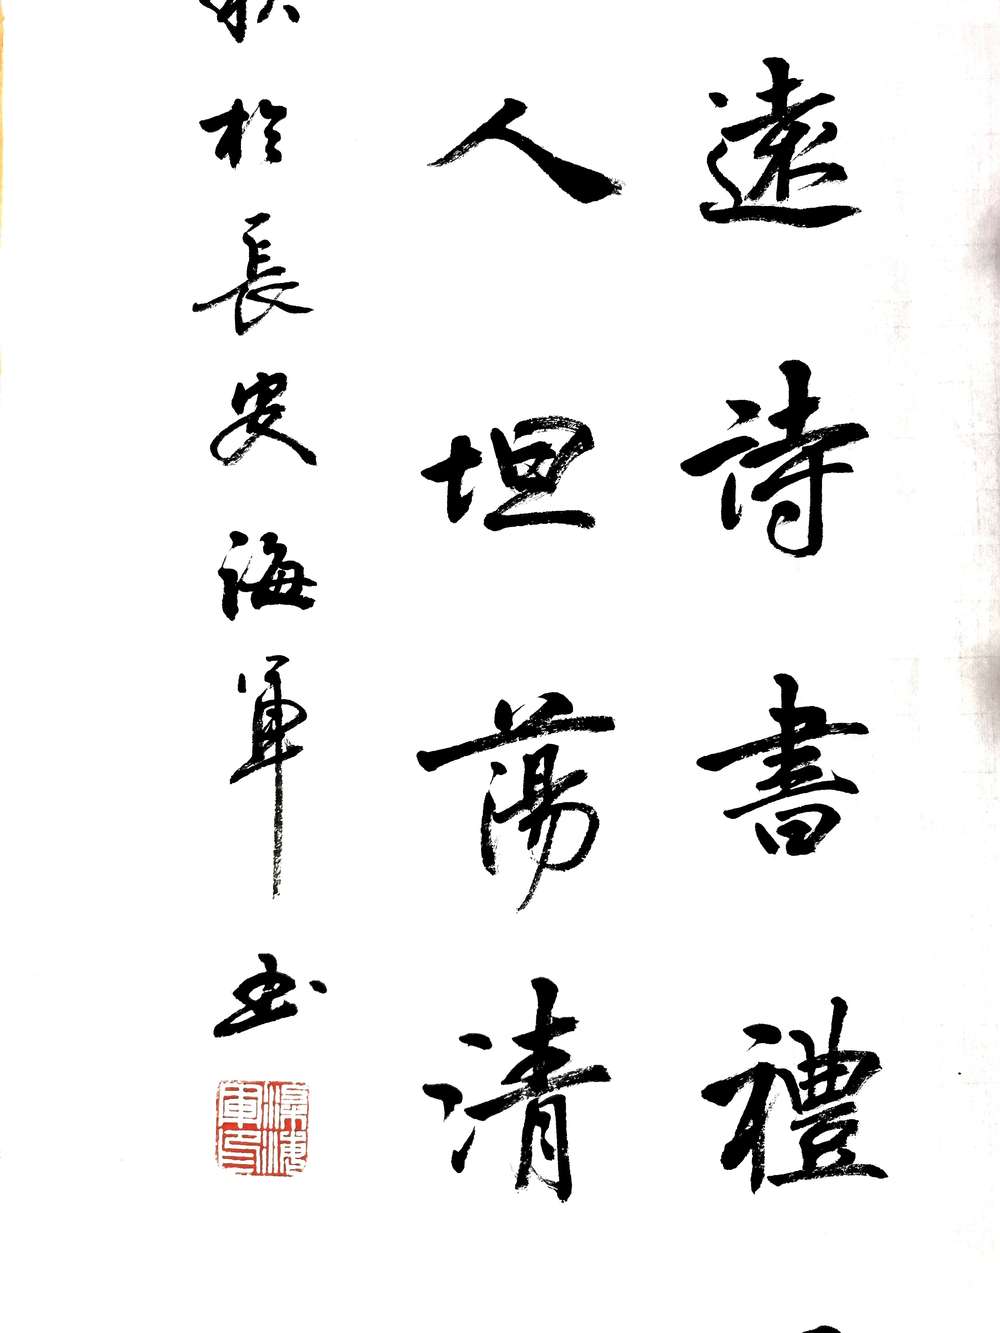 遠詩書禮
人坦蕩清
秋於長安海軍书